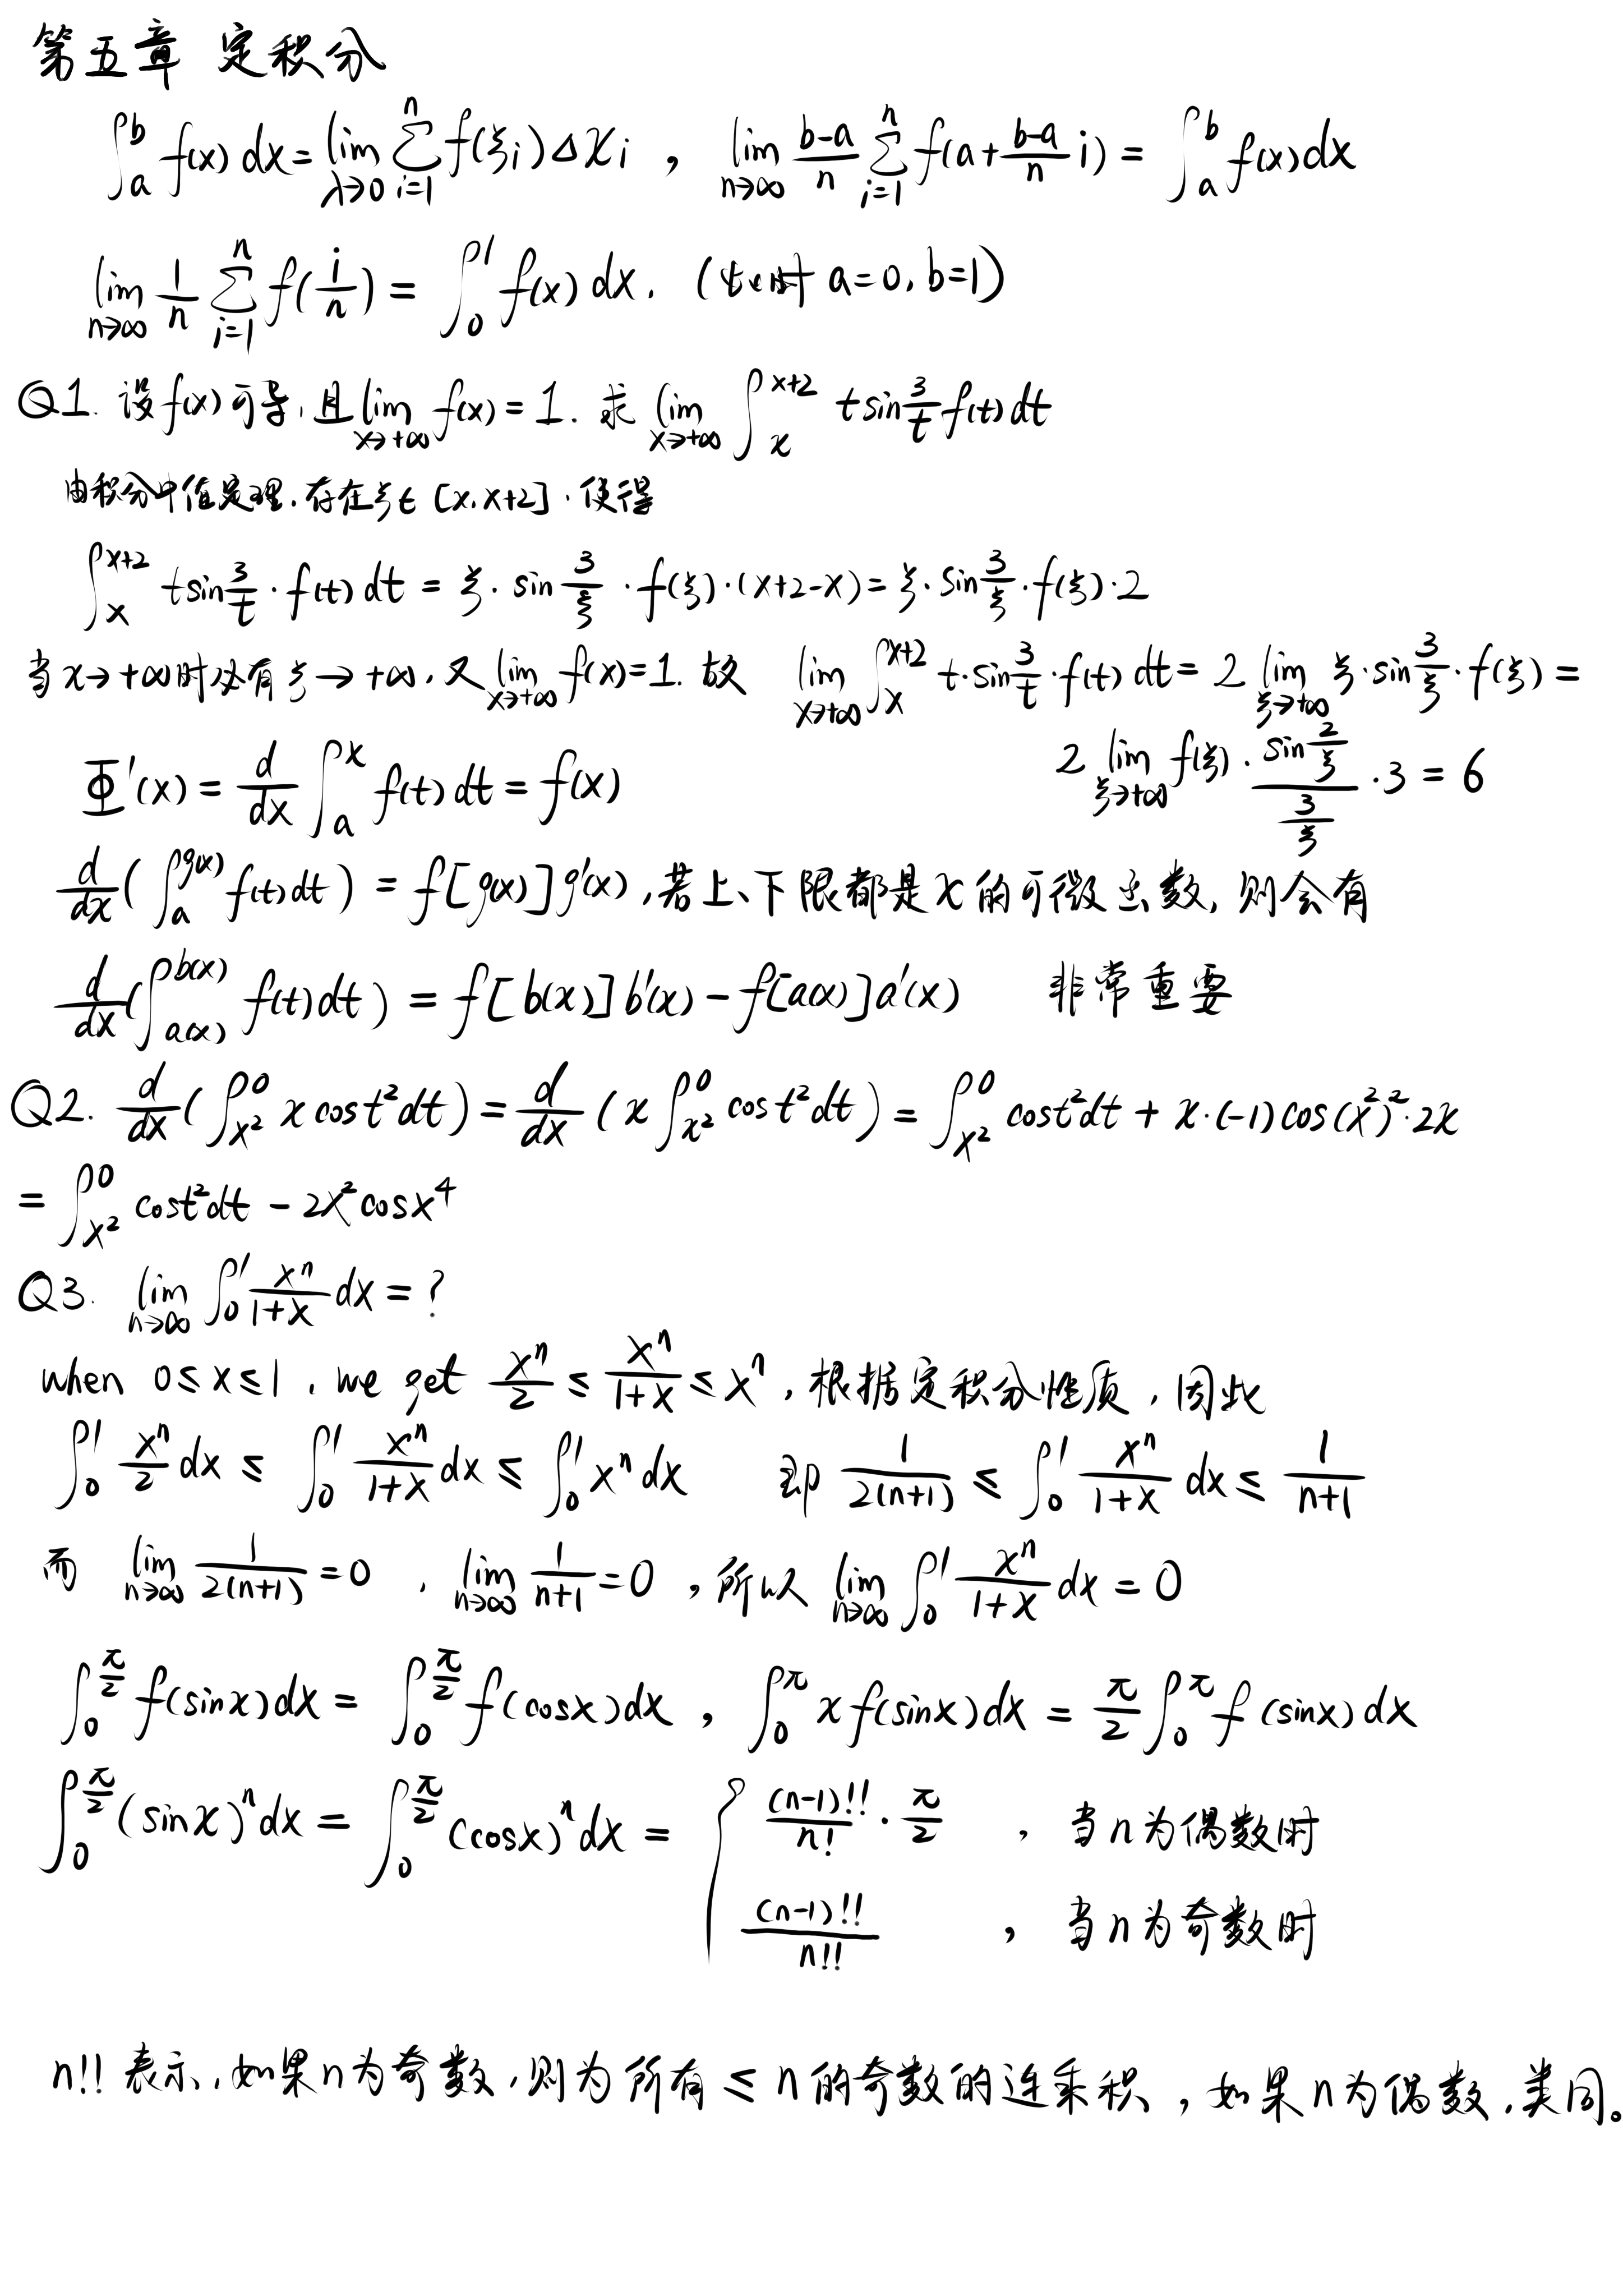 第五章 定积分
∫_a^b f(x) dx = lim_{λ→0} ∑_{i=1}^n f(ξi)Δxi , lim_{n→∞} (b-a)/n ∑_{i=1}^n f(a+(b-a)/n i) = ∫_a^b f(x)dx
lim_{n→∞} 1/n ∑_{i=1}^n f(i/n) = ∫_0^1 f(x) dx. ( a=0, b=1)
Q1. 设f(x)可导, 且 lim_{x→+∞} f(x) = 1. 求 lim_{x→+∞} ∫_x^{x+2} t sin(3/t) f(t) dt
由积分中值定理.存在ξ∈[x.x+2].使得
∫_x^{x+2} t sin(3/t)·f(t) dt = ξ·sin(3/ξ)·f(ξ)·(x+2-x) = ξ·sin(3/ξ)·f(ξ)·2
当x→+∞时必有ξ→+∞,又 lim_{x→+∞} f(x)=1. 故 lim_{x→+∞} ∫_x^{x+2} t·sin(3/t)·f(t) dt = 2 lim_{ξ→+∞} ξ·sin(3/ξ)·f(ξ) =
2 lim_{ξ→+∞} f(ξ)·(sin(2/ξ))/(3/ξ)·3 = 6
Φ'(x) = d/dx ∫_a^x f(t) dt = f(x)
d/dx(∫_a^{g(x)} f(t)dt) = f[g(x)]g'(x),若上、下限都是x的可微函数, 则会有
d/dx(∫_{a(x)}^{b(x)} f(t)dt) = f[b(x)]b'(x) - f[a(x)]a'(x) 非常重要
Q2. d/dx(∫_{x²}^0 x cos t² dt) = d/dx (x∫_{x²}^0 cos t² dt) = ∫_{x²}^0 cos t² dt + x·(-1)cos(x²)²·2x
= ∫_{x²}^0 cos t² dt - 2x² cos x⁴
Q3. lim_{n→∞} ∫_0^1 x^n/(1+x) dx = ?
when 0≤x≤1, we get x^n/2 ≤ x^n/(1+x) ≤ x^n,根据定积分性质,因此
∫_0^1 x^n/2 dx ≤ ∫_0^1 x^n/(1+x) dx ≤ ∫_0^1 x^n dx 即 1/(2(n+1)) ≤ ∫_0^1 x^n/(1+x) dx ≤ 1/(n+1)
而 lim_{n→∞} 1/(2(n+1)) = 0 , lim_{n→∞} 1/(n+1) = 0 ,所以 lim_{n→∞} ∫_0^1 x^n/(1+x) dx = 0
∫_0^{π/2} f(sinx)dx = ∫_0^{π/2} f(cosx)dx , ∫_0^π x f(sinx)dx = π/2 ∫_0^π f(sinx) dx
∫_0^{π/2} (sinx)^n dx = ∫_0^{π/2} (cosx)^n dx = { (n-1)!!/n!·π/2 , 当n为偶数时
(n-1)!!/n!! , 当n为奇数时
n!! 表示,如果n为奇数,则为所有≤n的奇数的连乘积,如果n为偶数,类同。